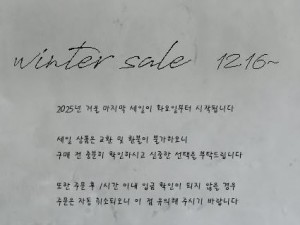 winter sale 12.16~
2025년 겨울 마지막 세일이 화요일부터 시작됩니다
세일 상품은 교환 및 환불이 불가하오니
구매 전 충분히 확인하시고 신중한 선택을 부탁드립니다
또한 주문 후 1시간 이내 입금 확인이 되지 않을 경우
주문은 자동 취소되오니 이 점 유의해 주시기 바랍니다